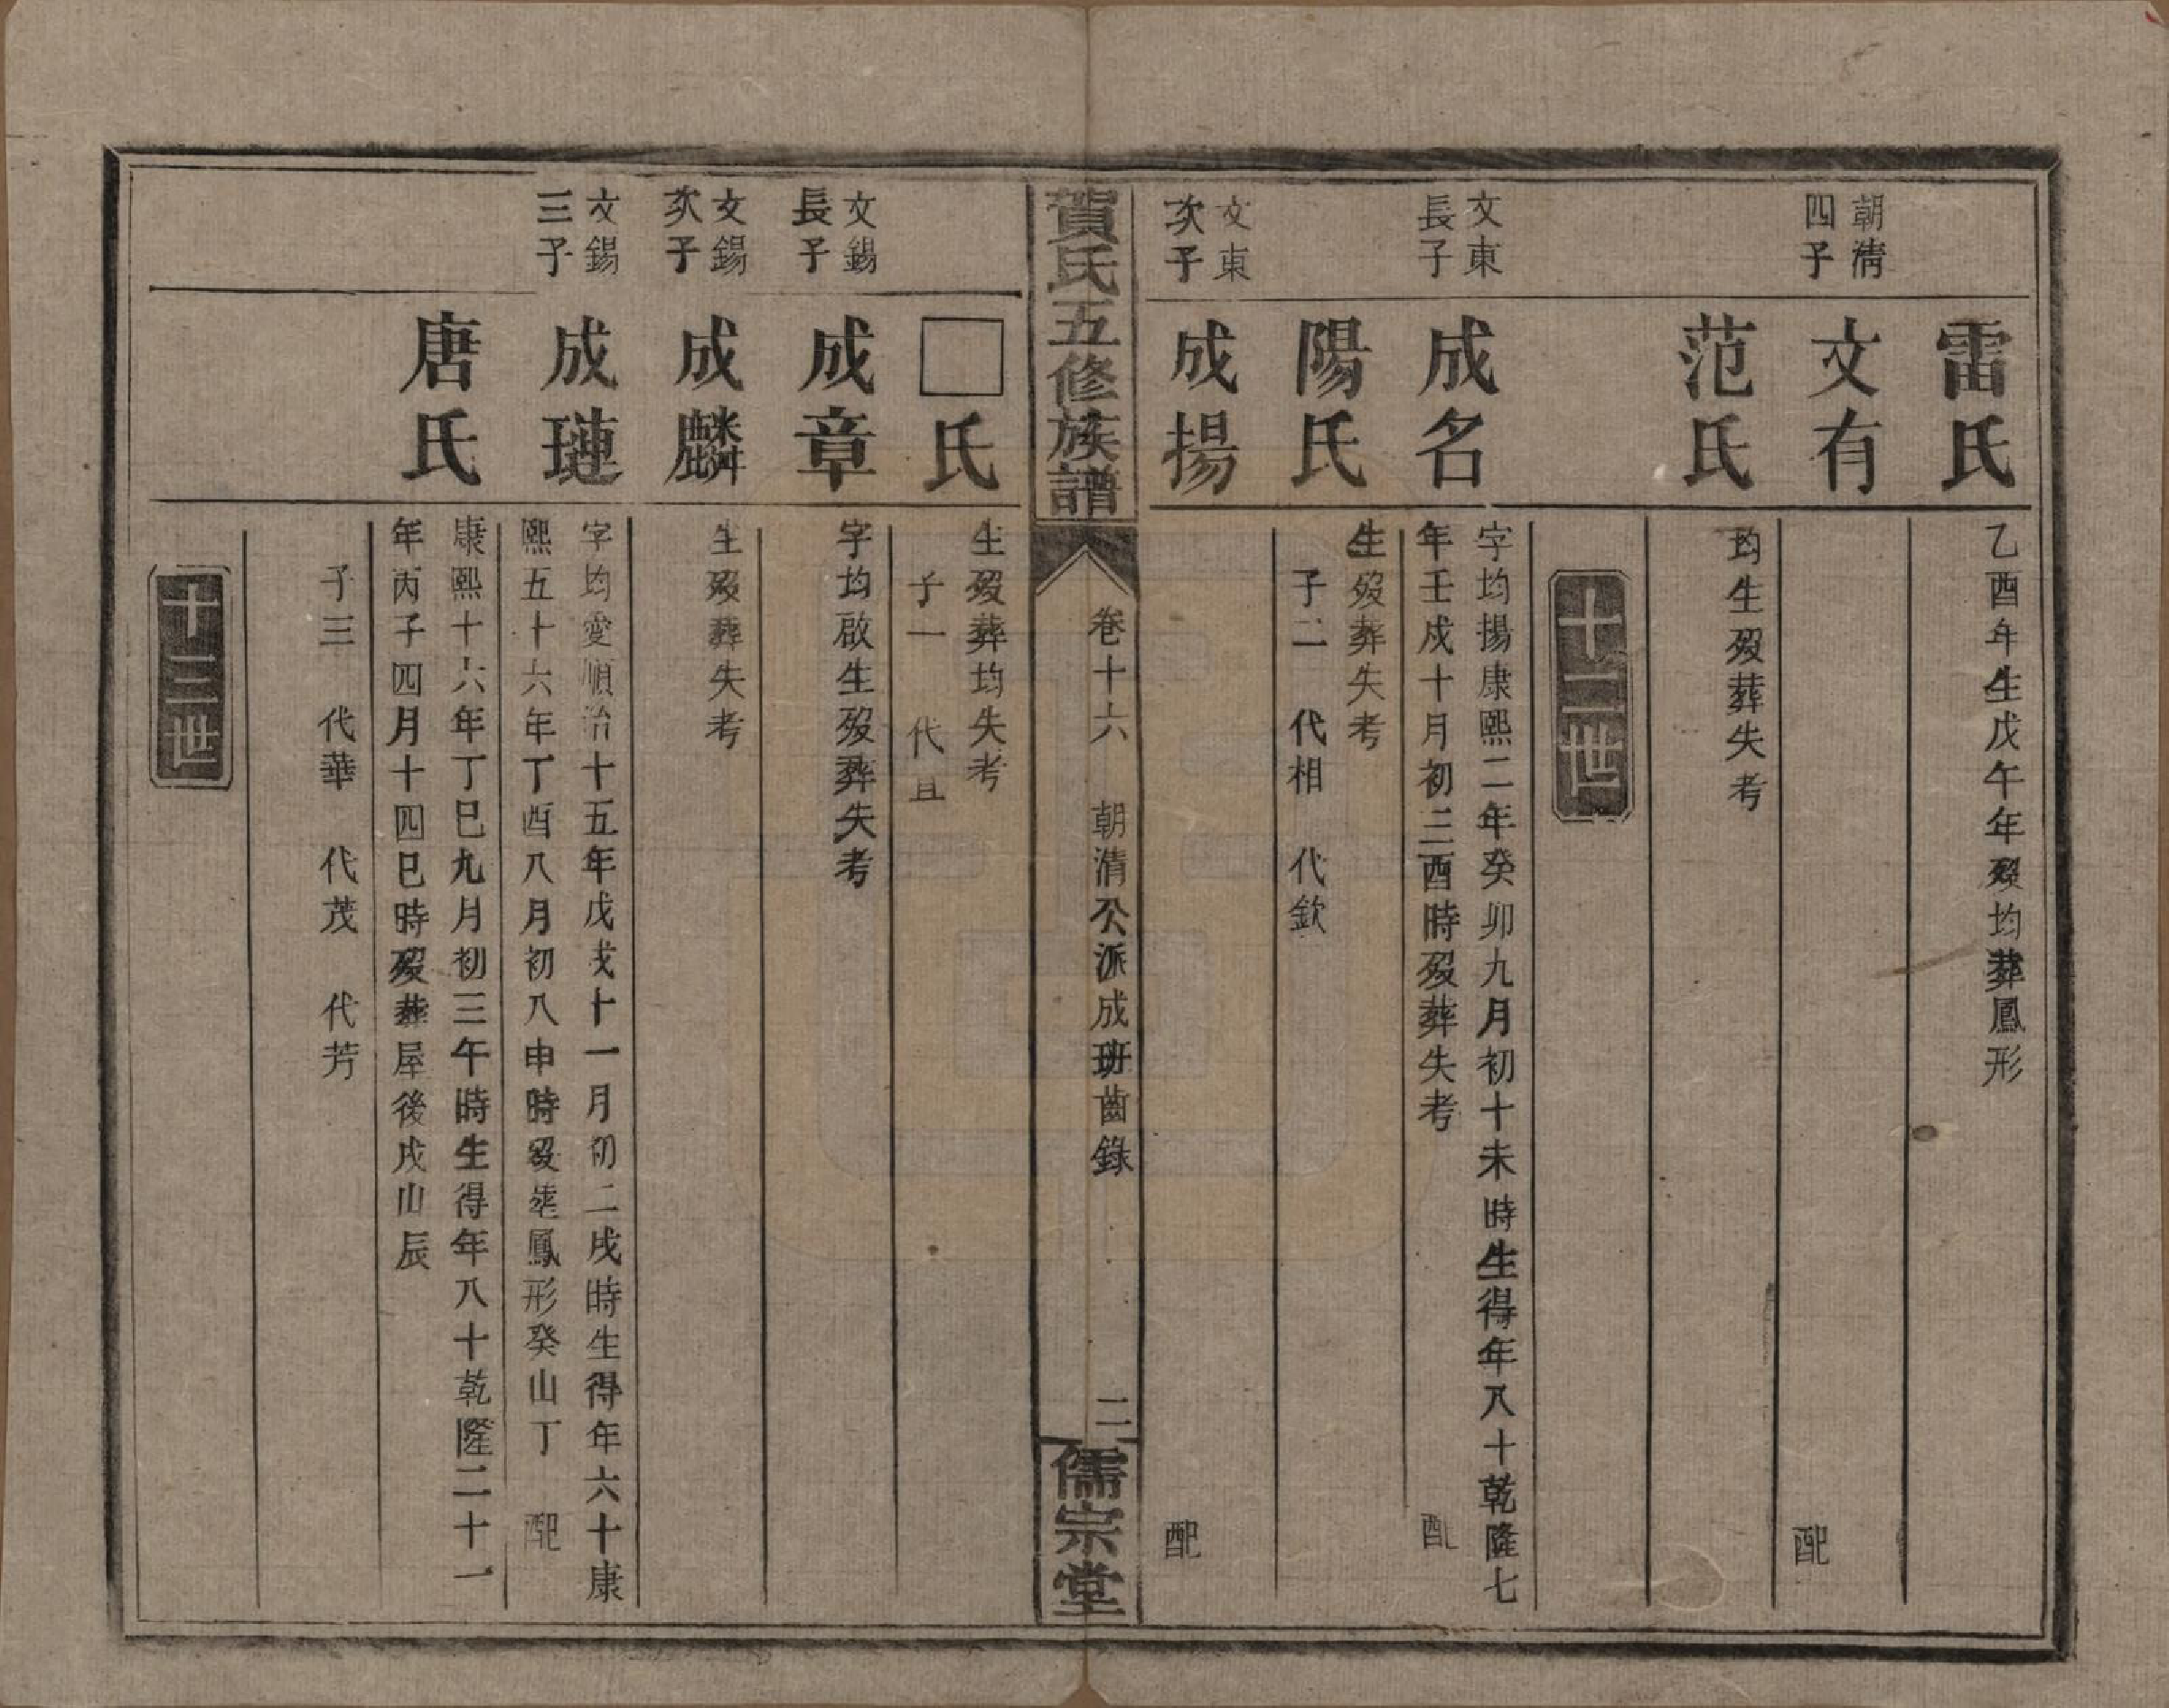 雷氏
乙酉年生戊午年歿均葬鳳形
朝清
四子
文有
配
范氏
均生歿葬失考
十二世
文東
長子
成名
字均揚康熙二年癸卯九月初十未時生得年八十乾隆七
年壬戌十月初三酉時歿葬失考
配
陽氏
生歿葬失考
子二 代相 代欽
文東
次子
成揚
配
賀氏五修族譜
卷十六 朝清公派成班齒錄
二
儒宗堂
□氏
生歿葬均失考
子一 代直
文錫
長子
成章
字均啟生歿葬失考
文錫
次子
成麟
生歿葬失考
文錫
三子
成璉
字均愛順治十五年戊戌十一月初二戌時生得年六十康
熙五十六年丁酉八月初八申時歿葬鳳形癸山丁
配
唐氏
康熙十六年丁巳九月初三午時生得年八十乾隆二十一
年丙子四月十四巳時歿葬屋後戌山辰
子三 代華 代茂 代芳
十三世